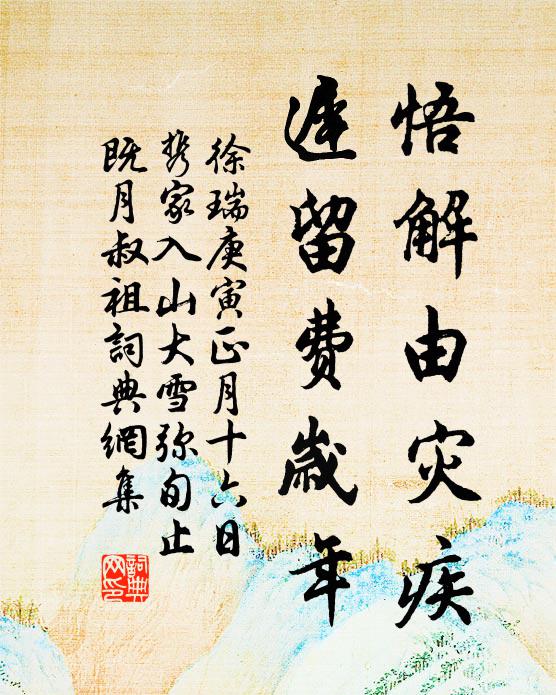 悟解由灾疾
遲留费歲年
徐瑞庚寅正月十六日
携家入山大雪弥旬止
既月叔祖詞典網集
詞典
网印